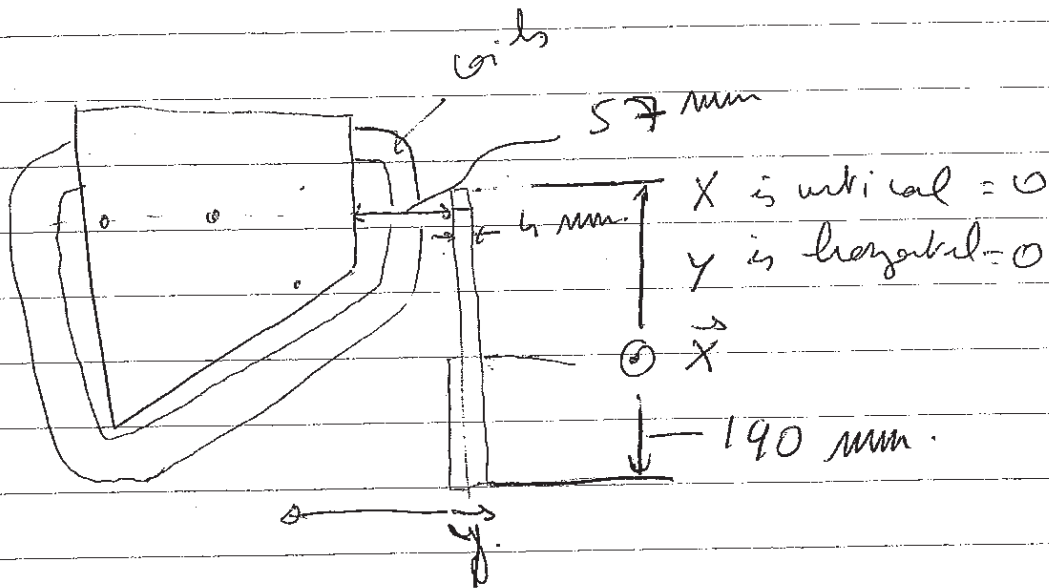 coils
57 mm
X is vertical = 0
4 mm.
Y is horizontal = 0
X
190 mm.
y.